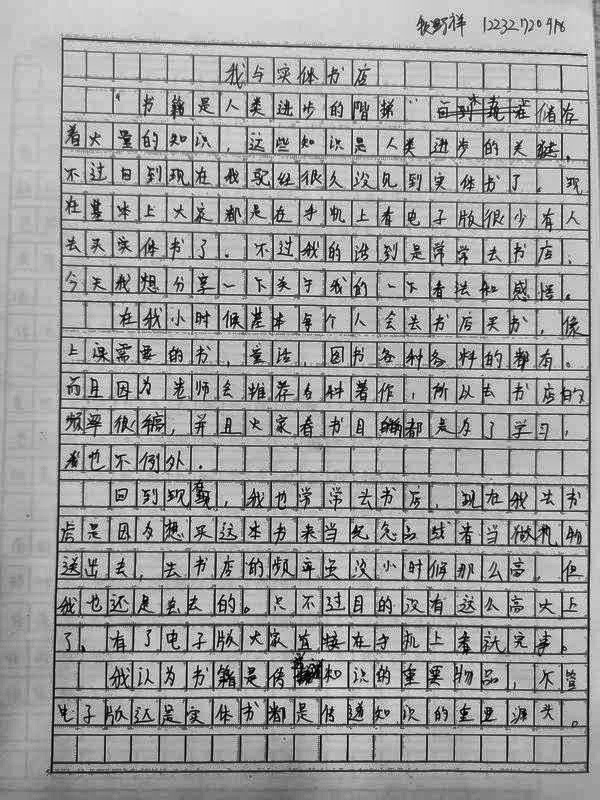 12232720418
我与实体书店
“书籍是人类进步的阶梯”储存
着大量的知识，这些知识是人类进步的关键。
不过回到现在我已经很久没见到实体书了。现
在基本上大家都是在手机上看电子版很少有人
去买实体书了。不过我的话到是常常去书店，
今天我想分享一下关于我的一下看法和感悟。
在我小时候基本每个人会去书店买书，像
上课需要的书，童话，图书各种各料的都有。
而且因为老师会推荐各种著作，所以去书店的
频率很稿，并且大家看书目都是为了学习，
我也不例外。
回到现在，我也常常去书店，现在我去书
店是因为想买这本书来当纪念品或者当做礼物
送出去，去书店的频率虽没小时候那么高，但
我也还是会去的。只不过目的没有这么高大上
了。有了电子版大家直接在手机上看就完事。
我认为书籍是传知识的重要物品，不管
电子版还是实体书都是传递知识的重要源头。